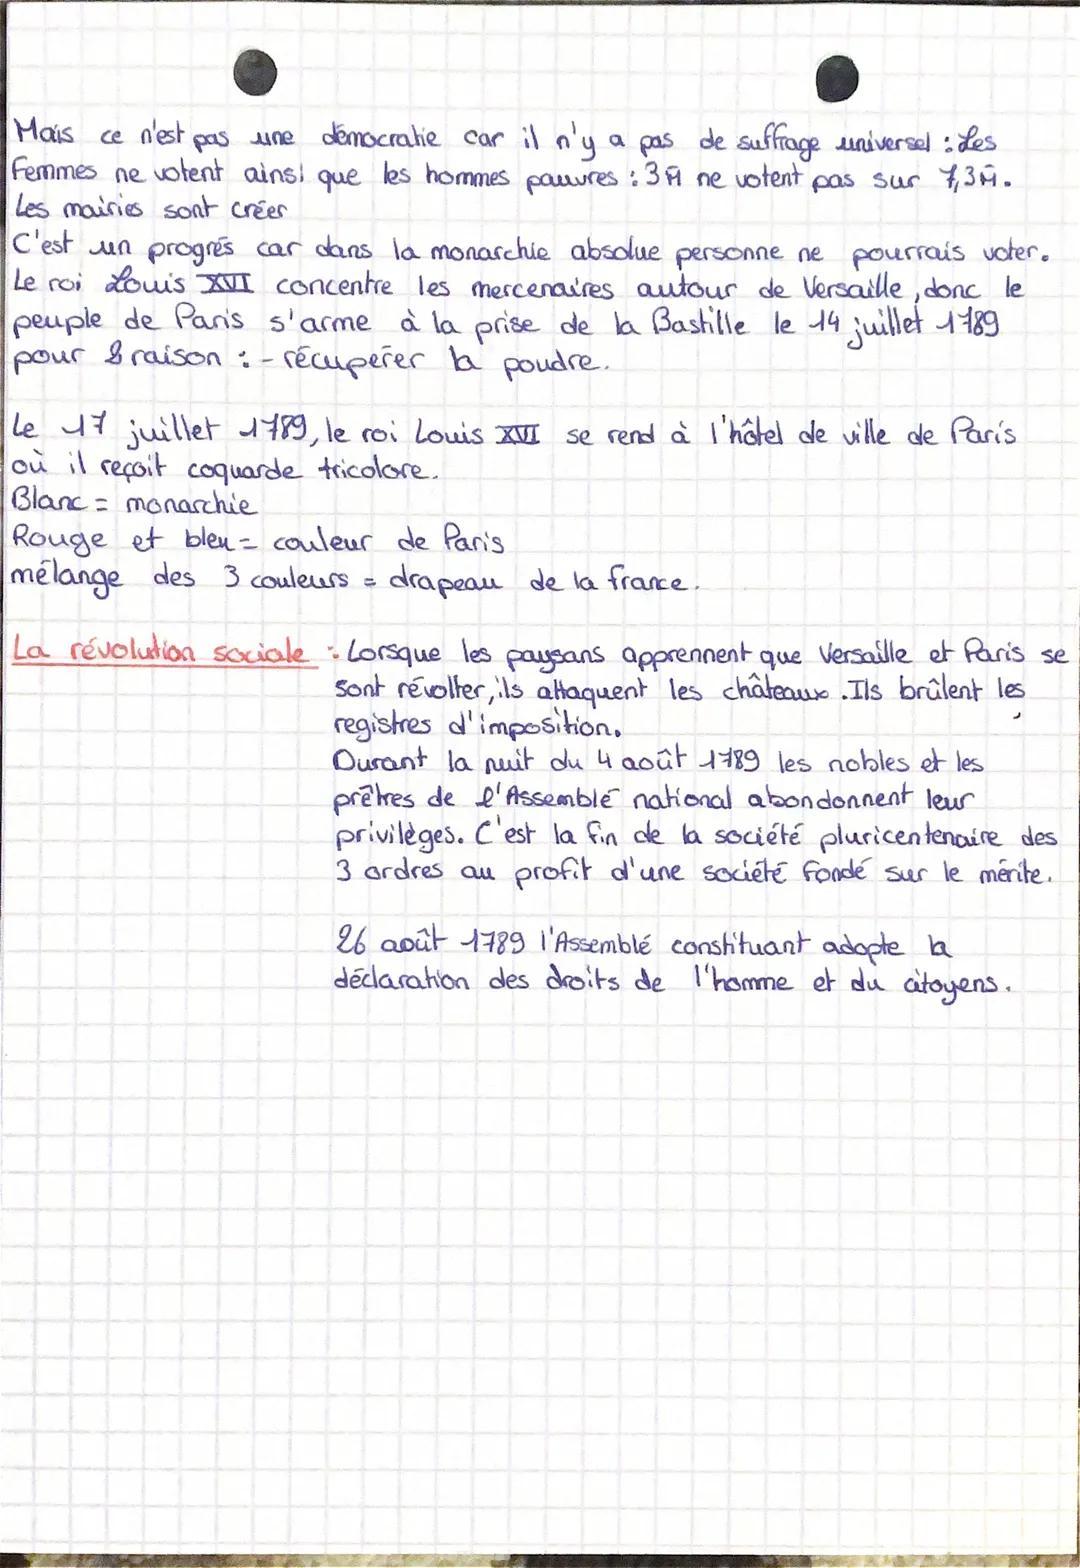 Mais ce n'est pas une démocratie car il n'y a pas de suffrage universel : Les
femmes ne votent ainsi que les hommes pauvres : 3M ne votent pas sur 7,3M.
Les mairies sont créer
C'est un progrés car dans la monarchie absolue personne ne pourrais voter.
Le roi Louis XVI concentre les mercenaires autour de Versaille, donc le
peuple de Paris s'arme à la prise de la Bastille le 14 juillet 1789
pour raison : - récupérer la poudre.
Le 17 juillet 1789, le roi Louis XVI se rend à l'hôtel de ville de Paris
où il reçoit coquarde tricolore.
Blanc = monarchie
Rouge et bleu = couleur de Paris
mélange des 3 couleurs = drapeau de la france.
La révolution sociale : Lorsque les paysans apprennent que Versaille et Paris se
sont révolter, ils attaquent les châteaux. Ils brûlent les
registres d'imposition.
Durant la nuit du 4 août 1789 les nobles et les
prêtres de l'Assemblé national abondonnent leur
privilèges. C'est la fin de la société pluricentenaire des
3 ordres au profit d'une société fondé sur le mérite.
26 août 1789 l'Assemblé constituant adopte la
déclaration des droits de l'homme et du citoyens.